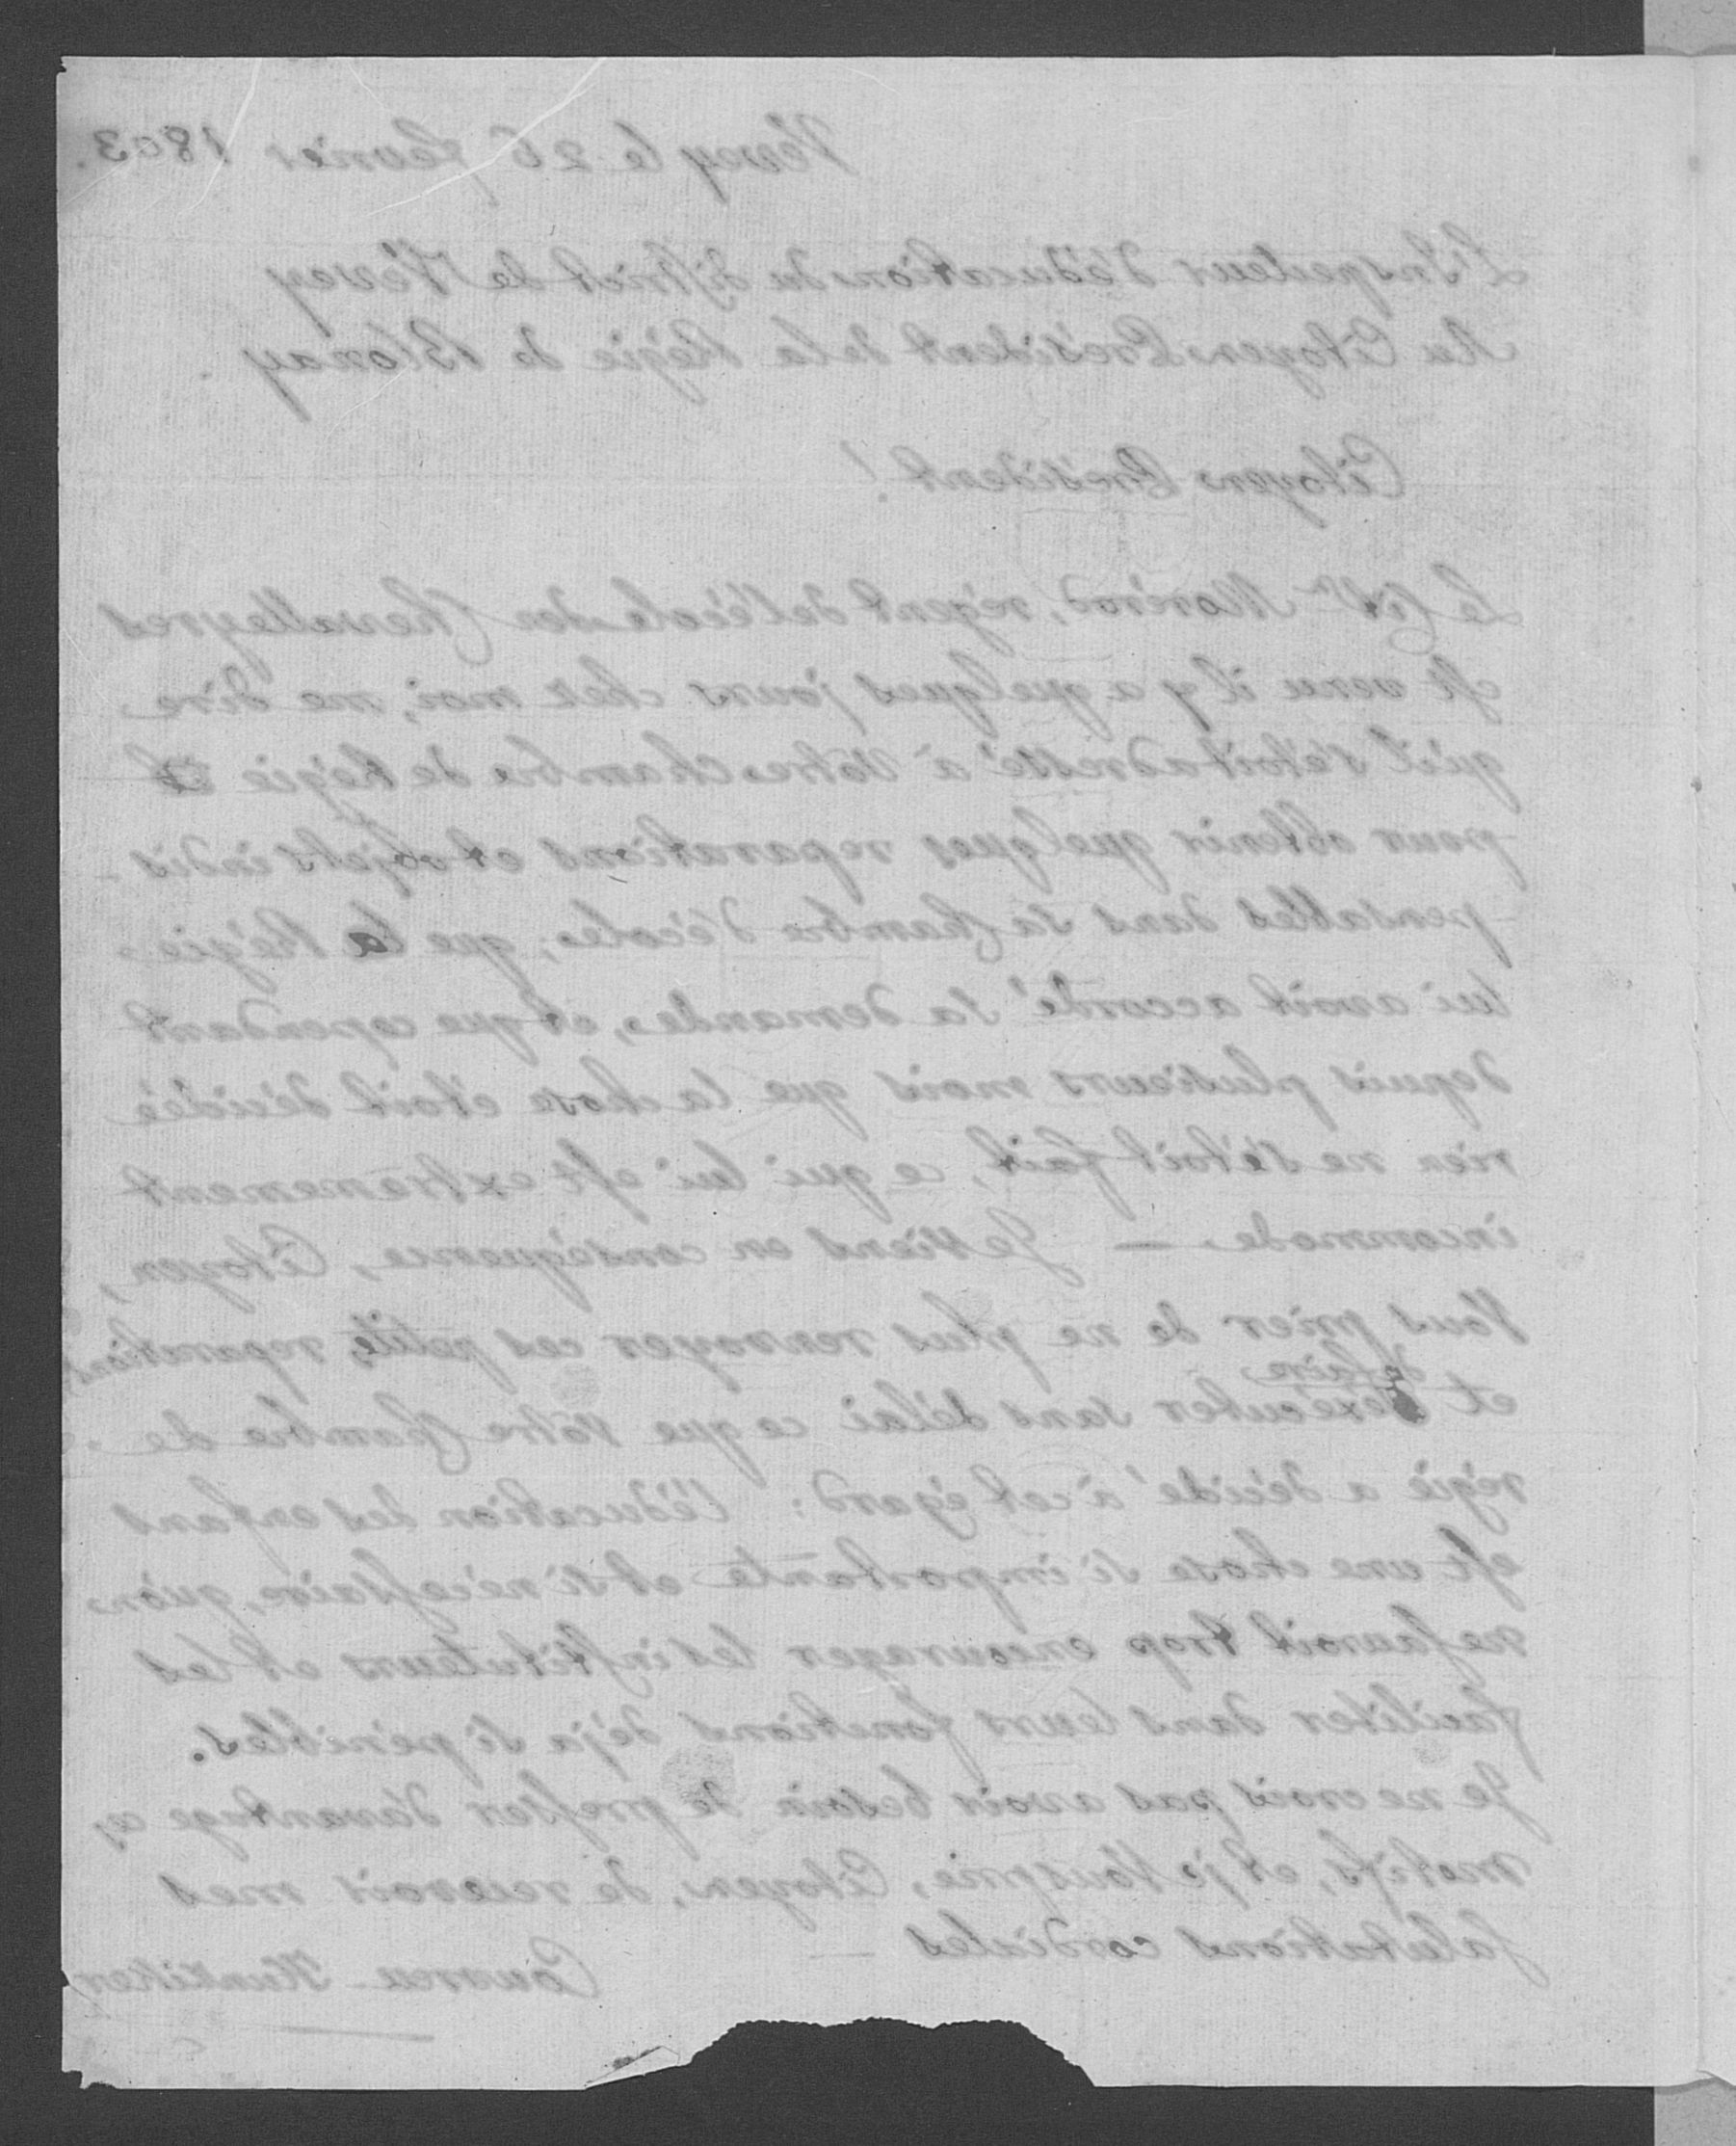 Vevey le 26 fevrier 1803.
L'Inspecteur d'éducation du district de Vevey
Au Citoyen Président de la Régie de Blonay.
Citoyen Président!
Le Citn Monrod, régent de l'école des Chevalleyres
est venu il y a quelques jours chez moi, me dire
qu'il s'étoit adressé à Votre Chambre de Régie
pour obtenir quelques reparations et objets indis-
pensables dans sa Chambre d'école; que la Régie
lui avoit accordé sa demande, et que cependant
depuis plusieurs mois que la chose étoit décidée
rien ne s'étoit fait, ce qui lui est extremement
incommode. — Je viens en conséquence, Citoyen,
Vous prier de ne plus renvoyer ces petites reparations,
de faire
et executer sans délai ce que Vôtre Chambre de
régie a décidé à cet égard: l'éducation des enfans
est une chose si importante et si nécessaire, qu'on
ne sauroit trop encourager les instituteurs et les
faciliter dans leurs fonctions déja si pénibles.
Je ne crois pas avoir besoin de presser davantage ces
motifs, et je Vous prie, Citoyen, de recevoir mes
salutations cordiales —
Couvreu